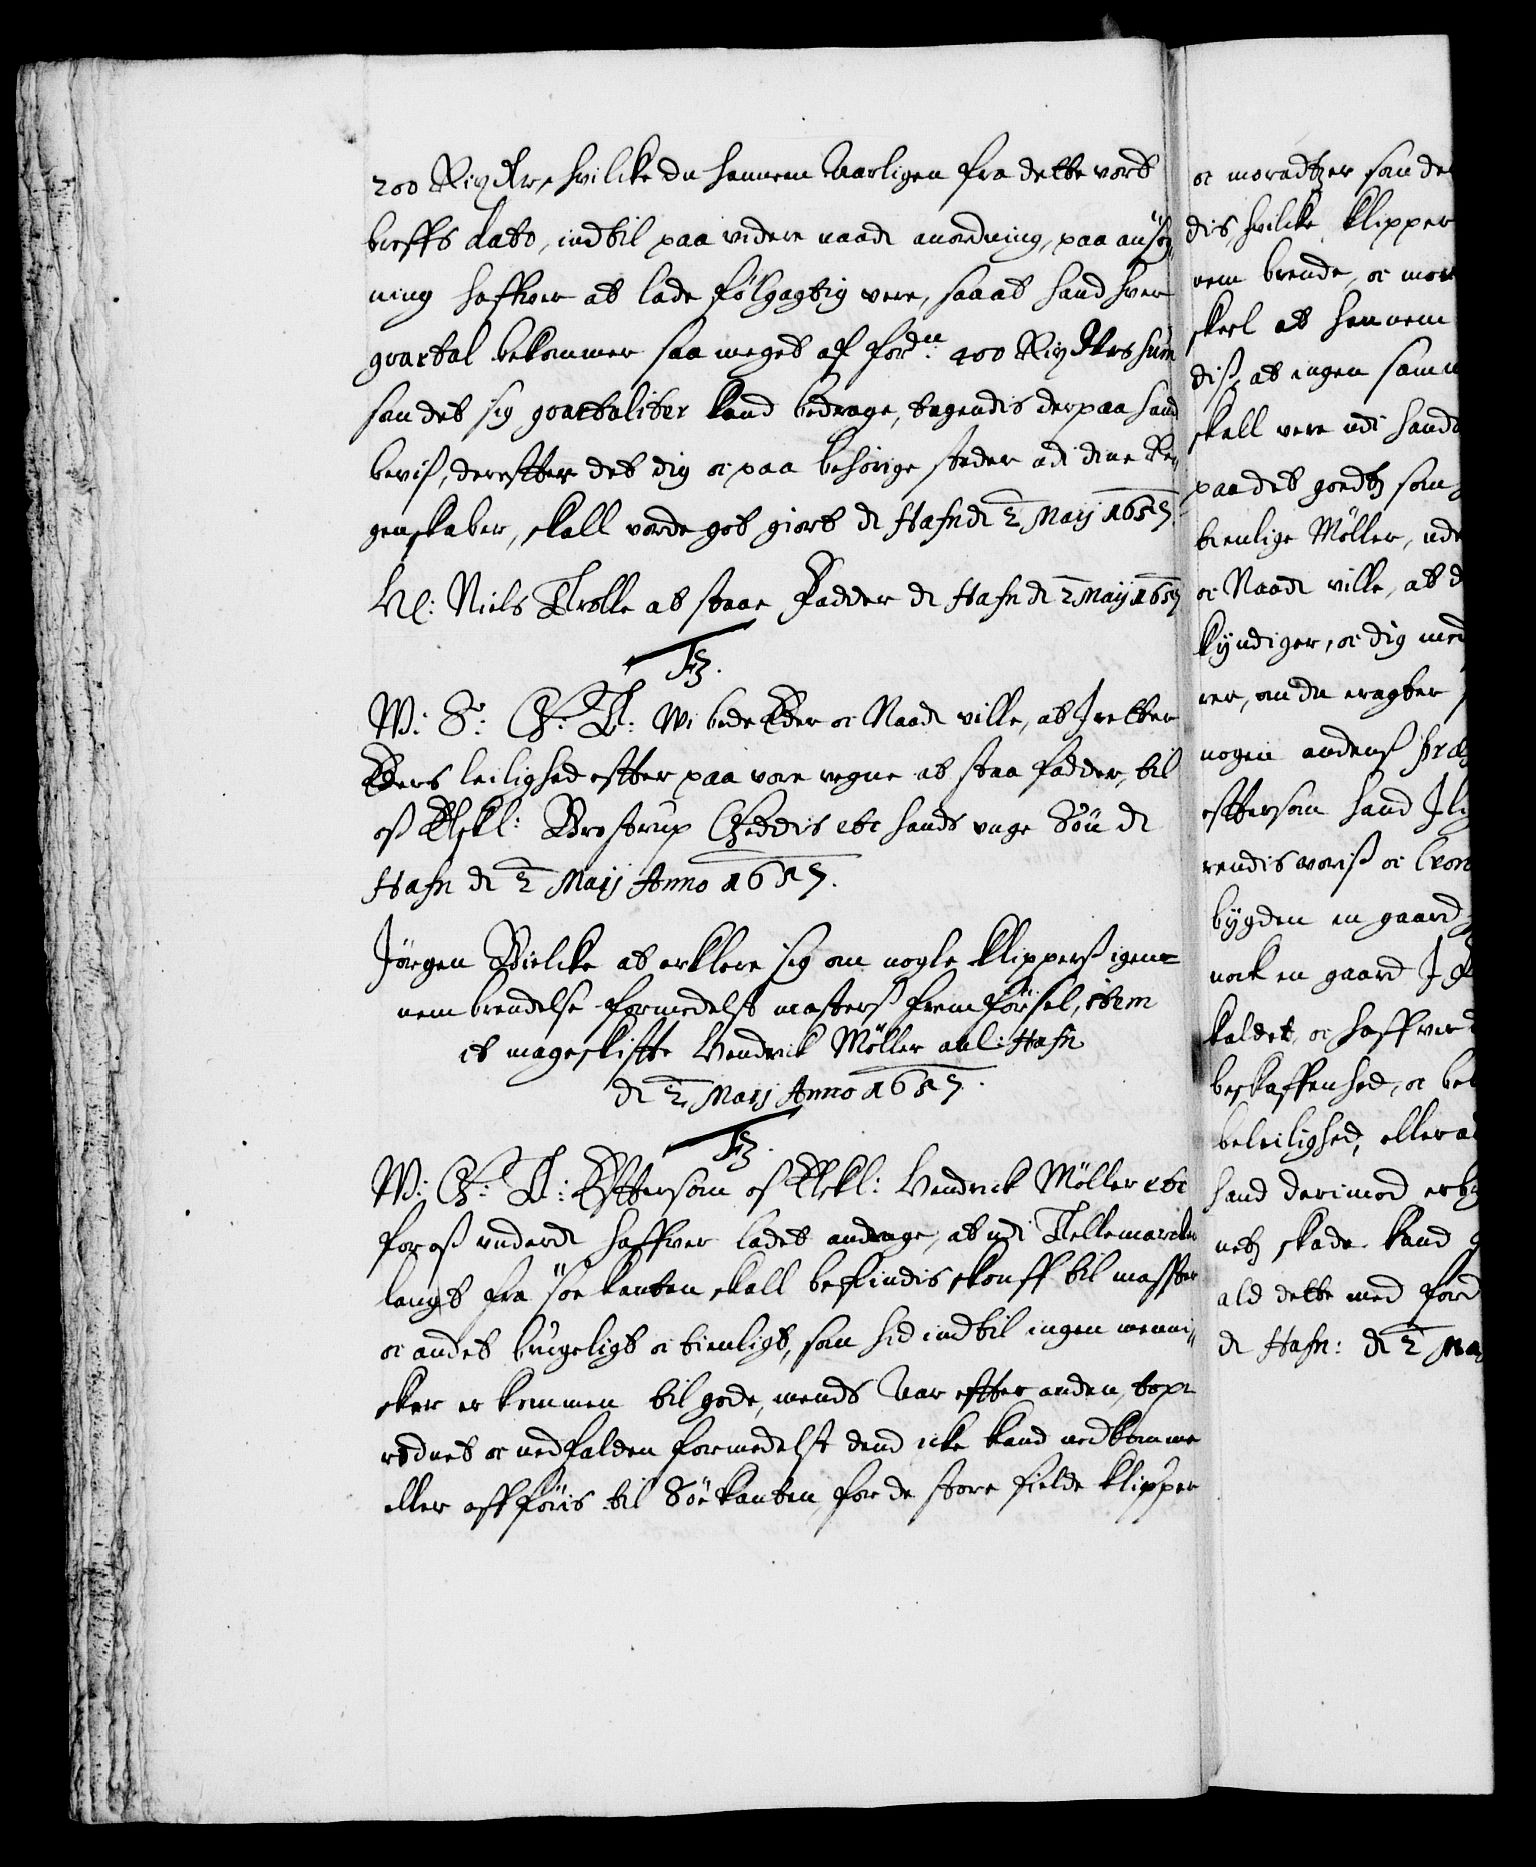 200 Rixdlr, hvilcke du hannem Aarligen fra dette vort
breffs dato, indtil paa videre naad. anordning, paa ansög,,
ning haffver at lade fölgagtig vere, saa at hand hver
qvartal bekommer saa meget af fordne 400 Rixdlrs sum
som det sig qvartaliter kand bedrage, tagendis derpaa hand
beviß, derefter det dig oc paa behörige steder udi dine Re,,
genskaber, skall vorde got giort de Hafn d. 2 Maij 1657.
Hl: Niels Trolle at staae Fadder de Hafn d. 2 Maij 1657
F3.
W: S: G: T: Wi bede Eder oc Naad. ville, at I retter
Eders leilighed effter paa vore vegne at staa fadder, til
oß Elskl: Brostrup Gieddis etc hands unge Sön de
Hafn d. 2 Maij Anno 1657.
Jörgen Bielcke at erklere sig om nogle klipperß igen=
nem brendelse formedelst masterß fremförsel, item
et mageskiffte Hendrick Möller anl: Hafn
d. 2 Maij Anno 1657.
F3.
W: G: T: Effter som oß Elskl: Hendrick Möller etc
for oß underd. haffver ladet andrage, at udi Tellemarcken
langt fra söe kanten skall befindis skouff til masster
oc andet brugeligt oc tienligt, som hid indtil ingen menni,,
sker er kommen til gode, mends Aar effter anden, top=
rödnet oc nedfalden formedelst dend icke kand nedkomme
eller afföris til Söe kanten, for de store fielde klipper
oc moradtzer som de
dis, hvilcke klipper
nem brende, oc mor
skel at hannem
diß, at ingen som
skall vere udi hands
paa det goedtz som
tienlige Möller, ud
oc Naad. ville, at d
kyndiger, oc dig med
rer, om du eragter
nogen andens
effter som hand
rendis voriß oc Cron
bÿgden en gaard
nock en gaard I
kaldet, oc haffver
beskaffenhed, oc bel
beleilighed, eller
hand derimod erby
netz skade kand
ald dette med ford
de Hafn: d. 2 Ma